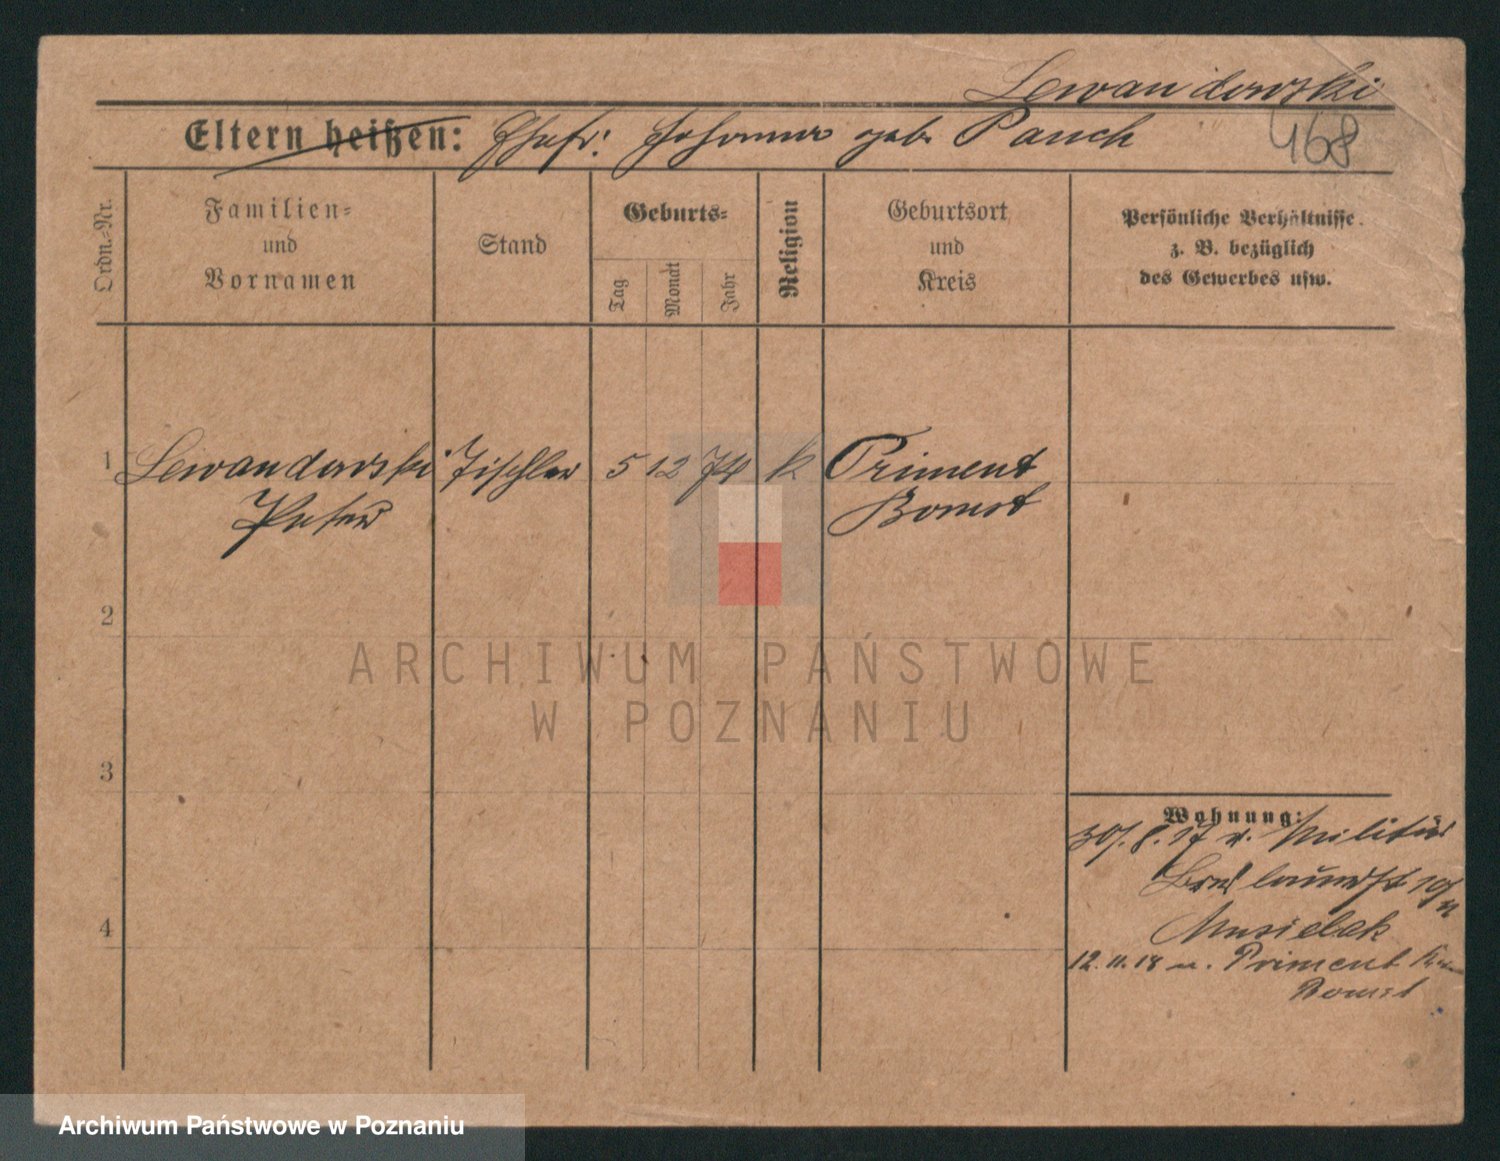 Lewandowski
Eltern heißen: Ehefr. Johanna geb. Pauch
468
Ordn.-Nr.
Familien-
und
Vornamen
Stand
Geburts-
Tag
Monat
Jahr
Religion
Geburtsort
und
Kreis
Persönliche Verhältnisse
z. B. bezüglich
des Gewerbes usw.
1 Lewandowski Tischler 5 12 74 k Priment
Peter Bomst
2
3
4
Wohnung:
30/.8.17 v. Militär
Musielak
12.11.18 n. Priment
Bomst
ARCHIWUM PAŃSTWOWE
W POZNANIU
Archiwum Państwowe w Poznaniu